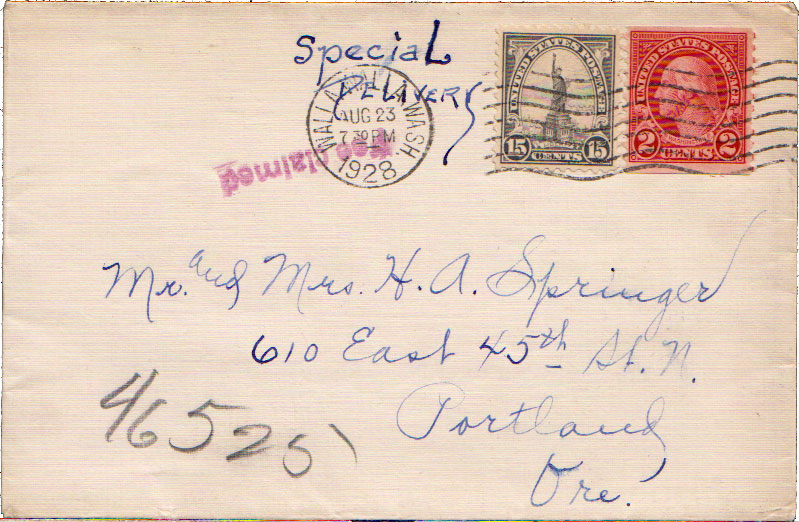 Special
DELIVERY
WALLA WALLA WASH.
AUG 23
7 30 PM
1928
UNITED STATES POSTAGE
15 CENTS 15
UNITED STATES POSTAGE
2 CENTS 2
claimed
Mr. and Mrs. H. A. Springer
610 East 45th St. N.
Portland
Ore.
46525